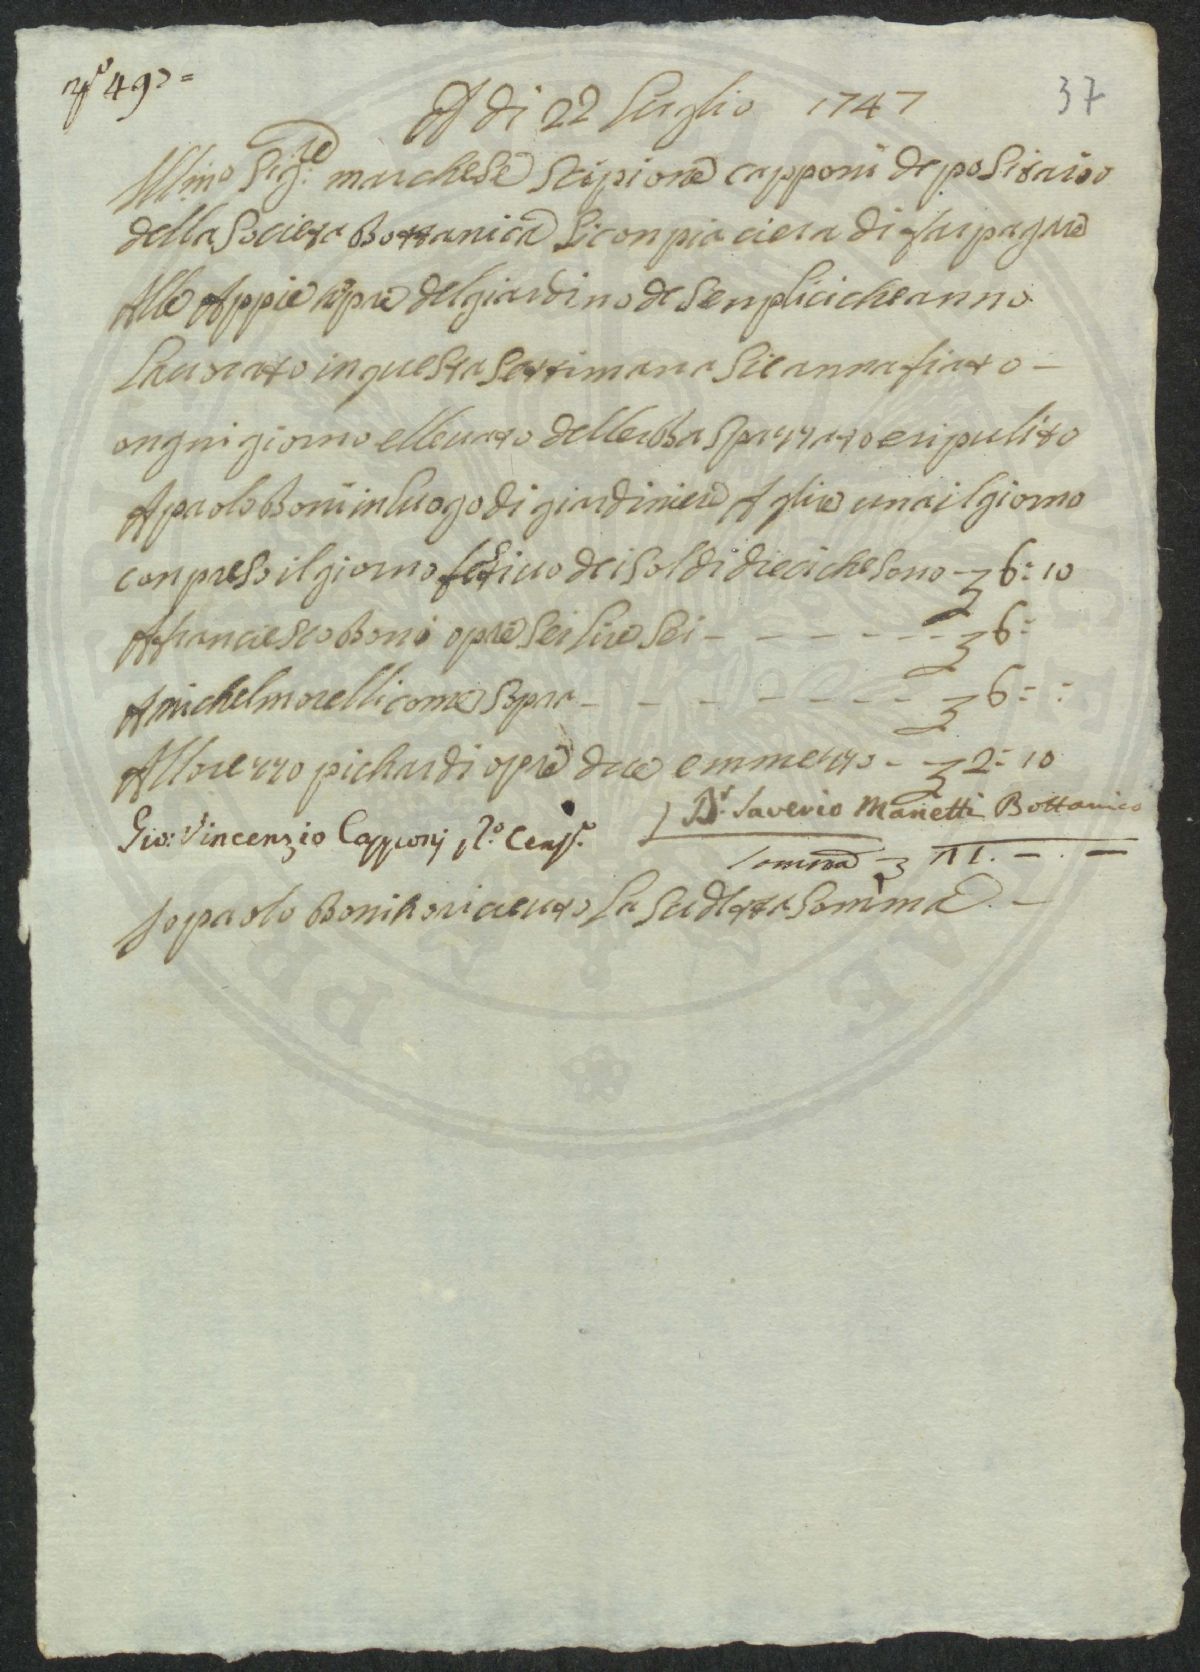 N.° 49 =
37
A di 22 luglio 1747
Ill.mo Sig.re marchese Scipione capponi depositario
della Societa Bottanica Si conpiaciera di far pagare
Alle Appie opre del giardino de Senplici che anno
lauorato in questa Settimana Si è annafiato –
ongni giorno elleuato dellerba Spazzato e ripulito
A paolo Boni in luogo di giardiniere A lire una il giorno
conpreso il giorno festiuo dei Soldi dieci che Sono – 6: 10
A franciesco Boni opre Sei lire Sei – – – – – – 6:
A michel morelli come Sopra – – – – – – – 6: :
A llorenzo pichardi opre due emmezzo – – 2: 10
Gio: Vincenzio Capponj P.° Cens.e
D.r Saverio Manetti Bottanico
Somma 21. – . –
Io paolo Boni ho riceuto la Sudetta Somma –